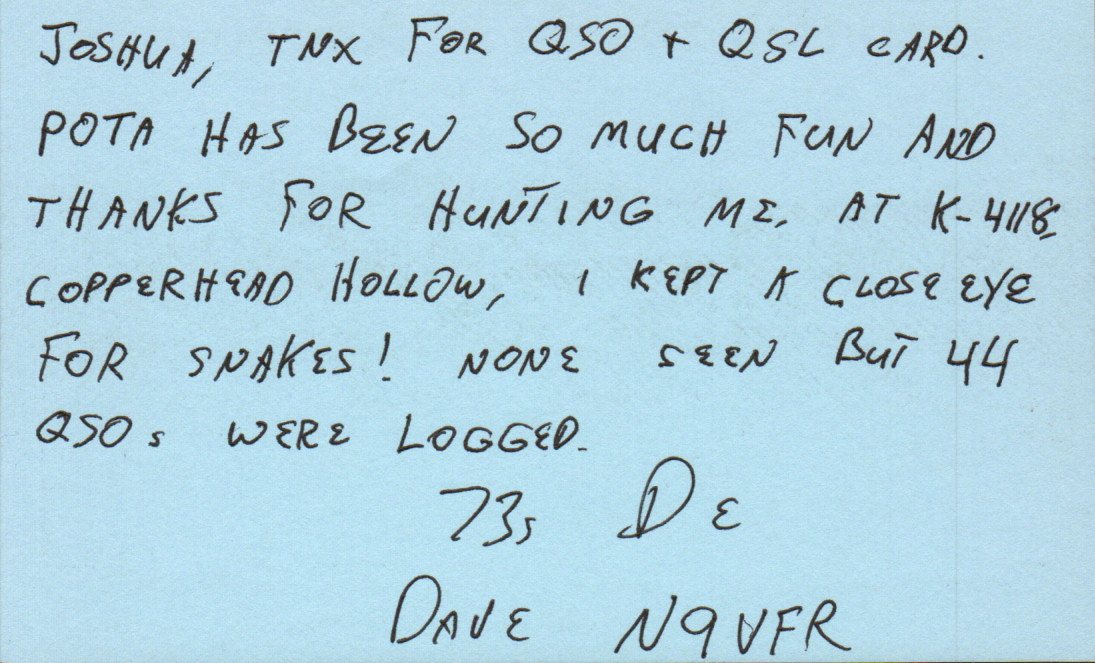 JOSHUA, TNX FOR QSO + QSL CARD.
POTA HAS BEEN SO MUCH FUN AND
THANKS FOR HUNTING ME. AT K-4118,
COPPERHEAD HOLLOW, I KEPT A CLOSE EYE
FOR SNAKES! NONE SEEN BUT 44
QSOs WERE LOGGED.
73s DE
DAVE N9VFR